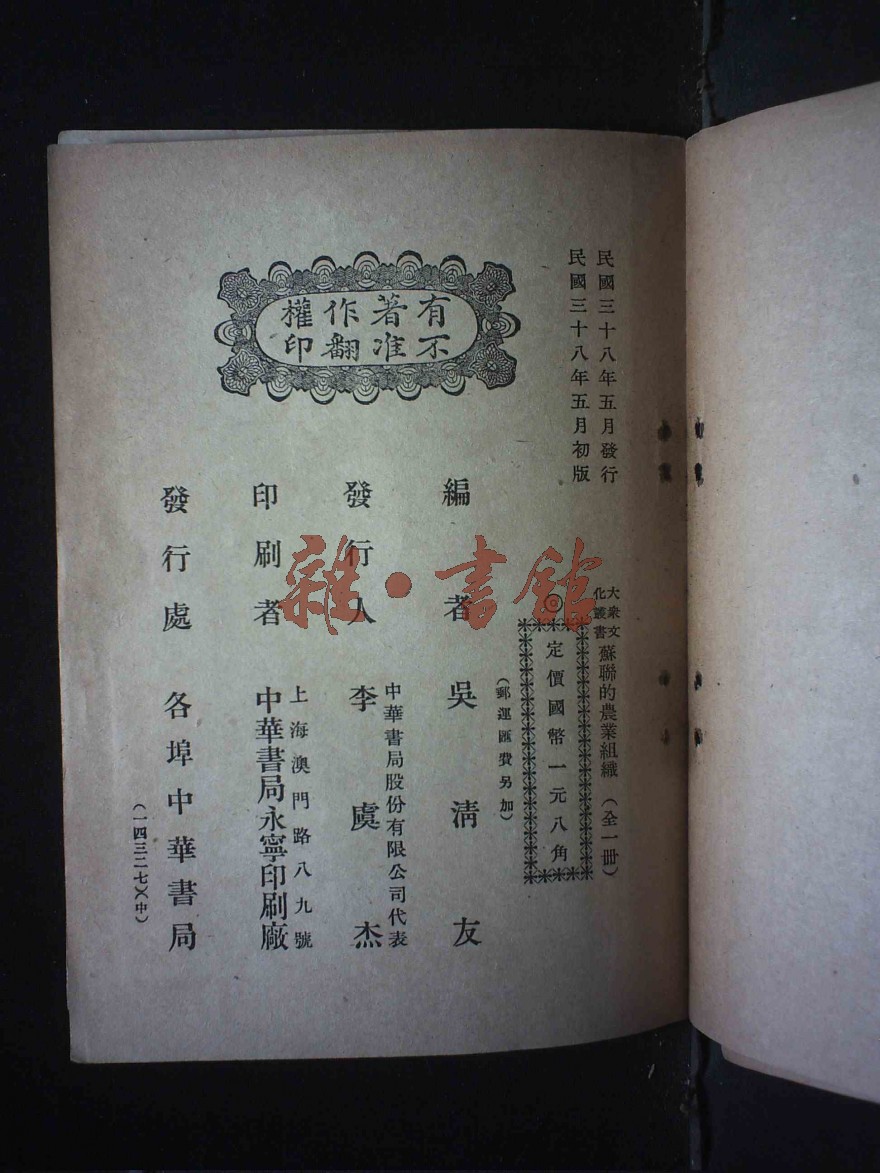 民國三十八年五月發行
民國三十八年五月初版
大衆文化叢書
蘇聯的農業組織（全一册）
◎定價國幣一元八角
（郵運匯費另加）
有著作權
不准翻印
編者 吳清友
發行人 李虞杰
中華書局股份有限公司代表
印刷者 中華書局永寧印刷廠
上海澳門路八九號
發行處 各埠中華書局
（一四三二七）（中）
雜·書館